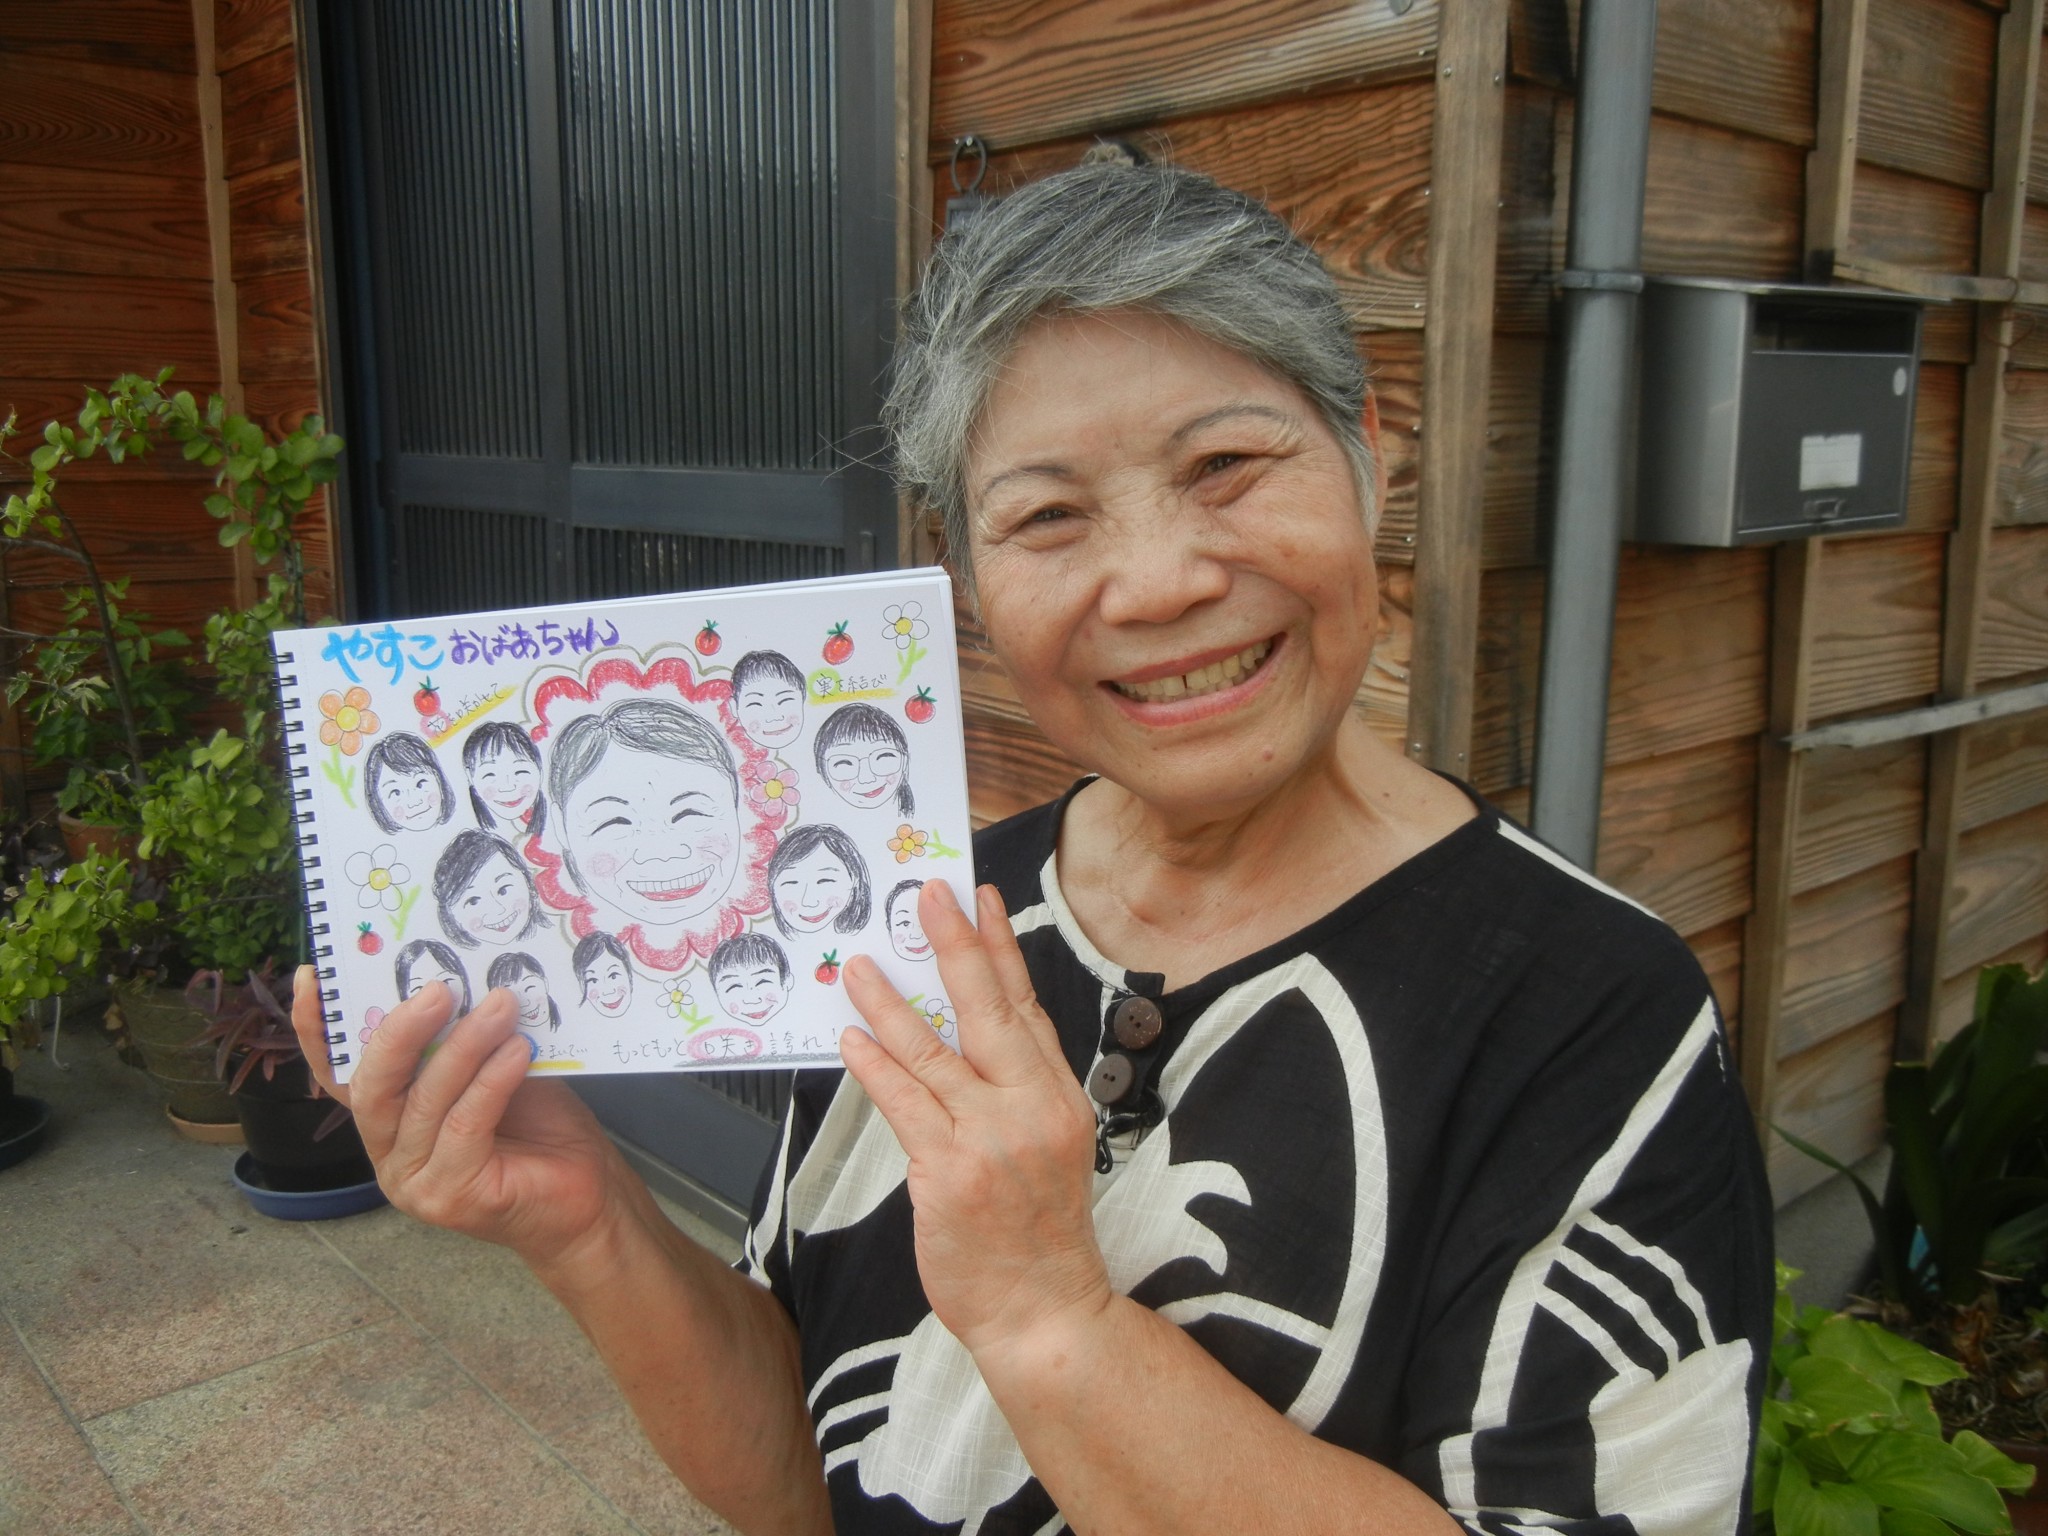 やすこ おばあちゃん
花を咲かせて
実を結び
をまいて…
もっともっと 咲き誇れ!